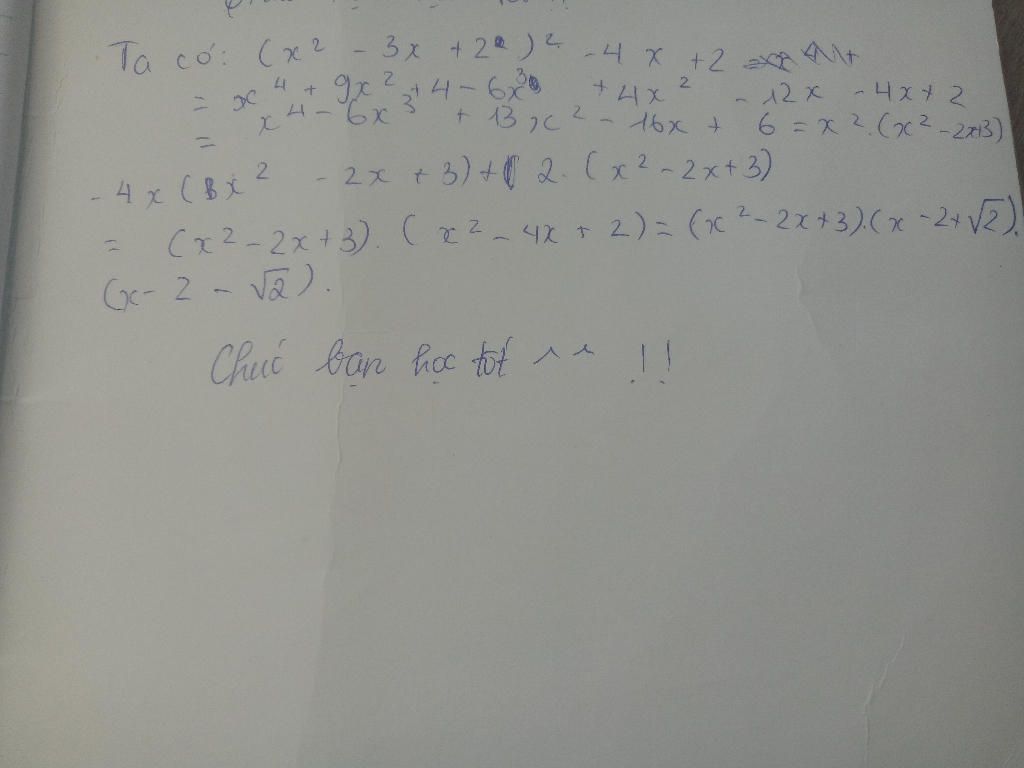 Ta có: (x² - 3x + 2)² - 4x + 2
= x⁴ + 9x² + 4 - 6x³ + 4x² - 12x - 4x + 2
= x⁴ - 6x³ + 13x² - 16x + 6 = x².(x² - 2x+3)
- 4x(x² - 2x + 3) + 2.(x² - 2x + 3)
= (x² - 2x + 3).(x² - 4x + 2) = (x² - 2x + 3).(x - 2 + √2).
(x - 2 - √2).
Chúc bạn học tốt ^ ^ !!